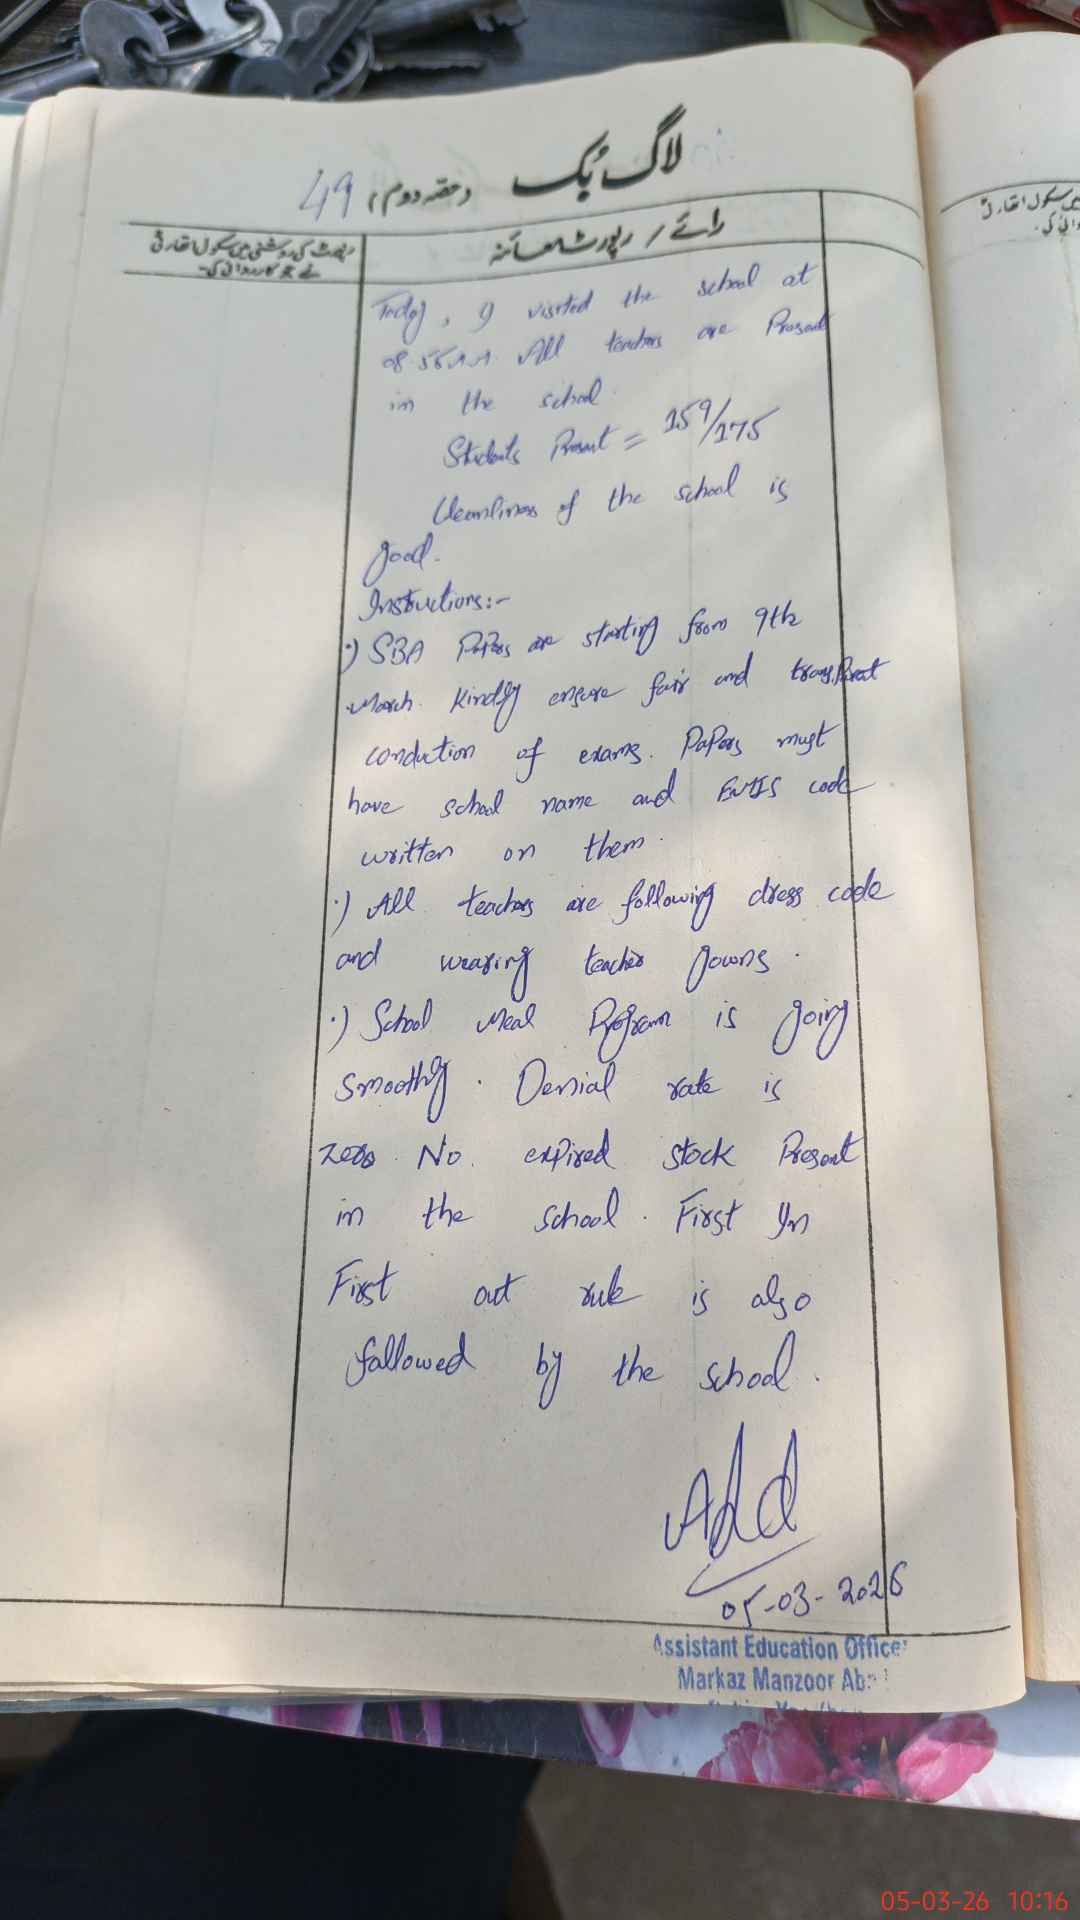 لاگ بُک
(حصّہ دوم) 49
رائے / رپورٹ معائنہ
رپورٹ کی روشنی میں سکول اتھارٹی
نے جو کارروائی کی۔
Today, I visited the school at
08:55 A.M. All teachers are Present
in the school.
Students Present = 159/175
Cleanliness of the school is
good.
Instructions:-
·) SBA Papers are starting from 9th
March. Kindly ensure fair and transparent
conduction of exams. Papers must
have school name and EMIS code
written on them.
·) All teachers are following dress code
and wearing teacher gowns.
·) School Meal Program is going
smoothly. Denial rate is
zero. No expired stock Present
in the school. First In
First out rule is also
followed by the school.
05-03-2026
Assistant Education Officer
Markaz Manzoor
سکول اتھارٹی
05-03-26 10:16